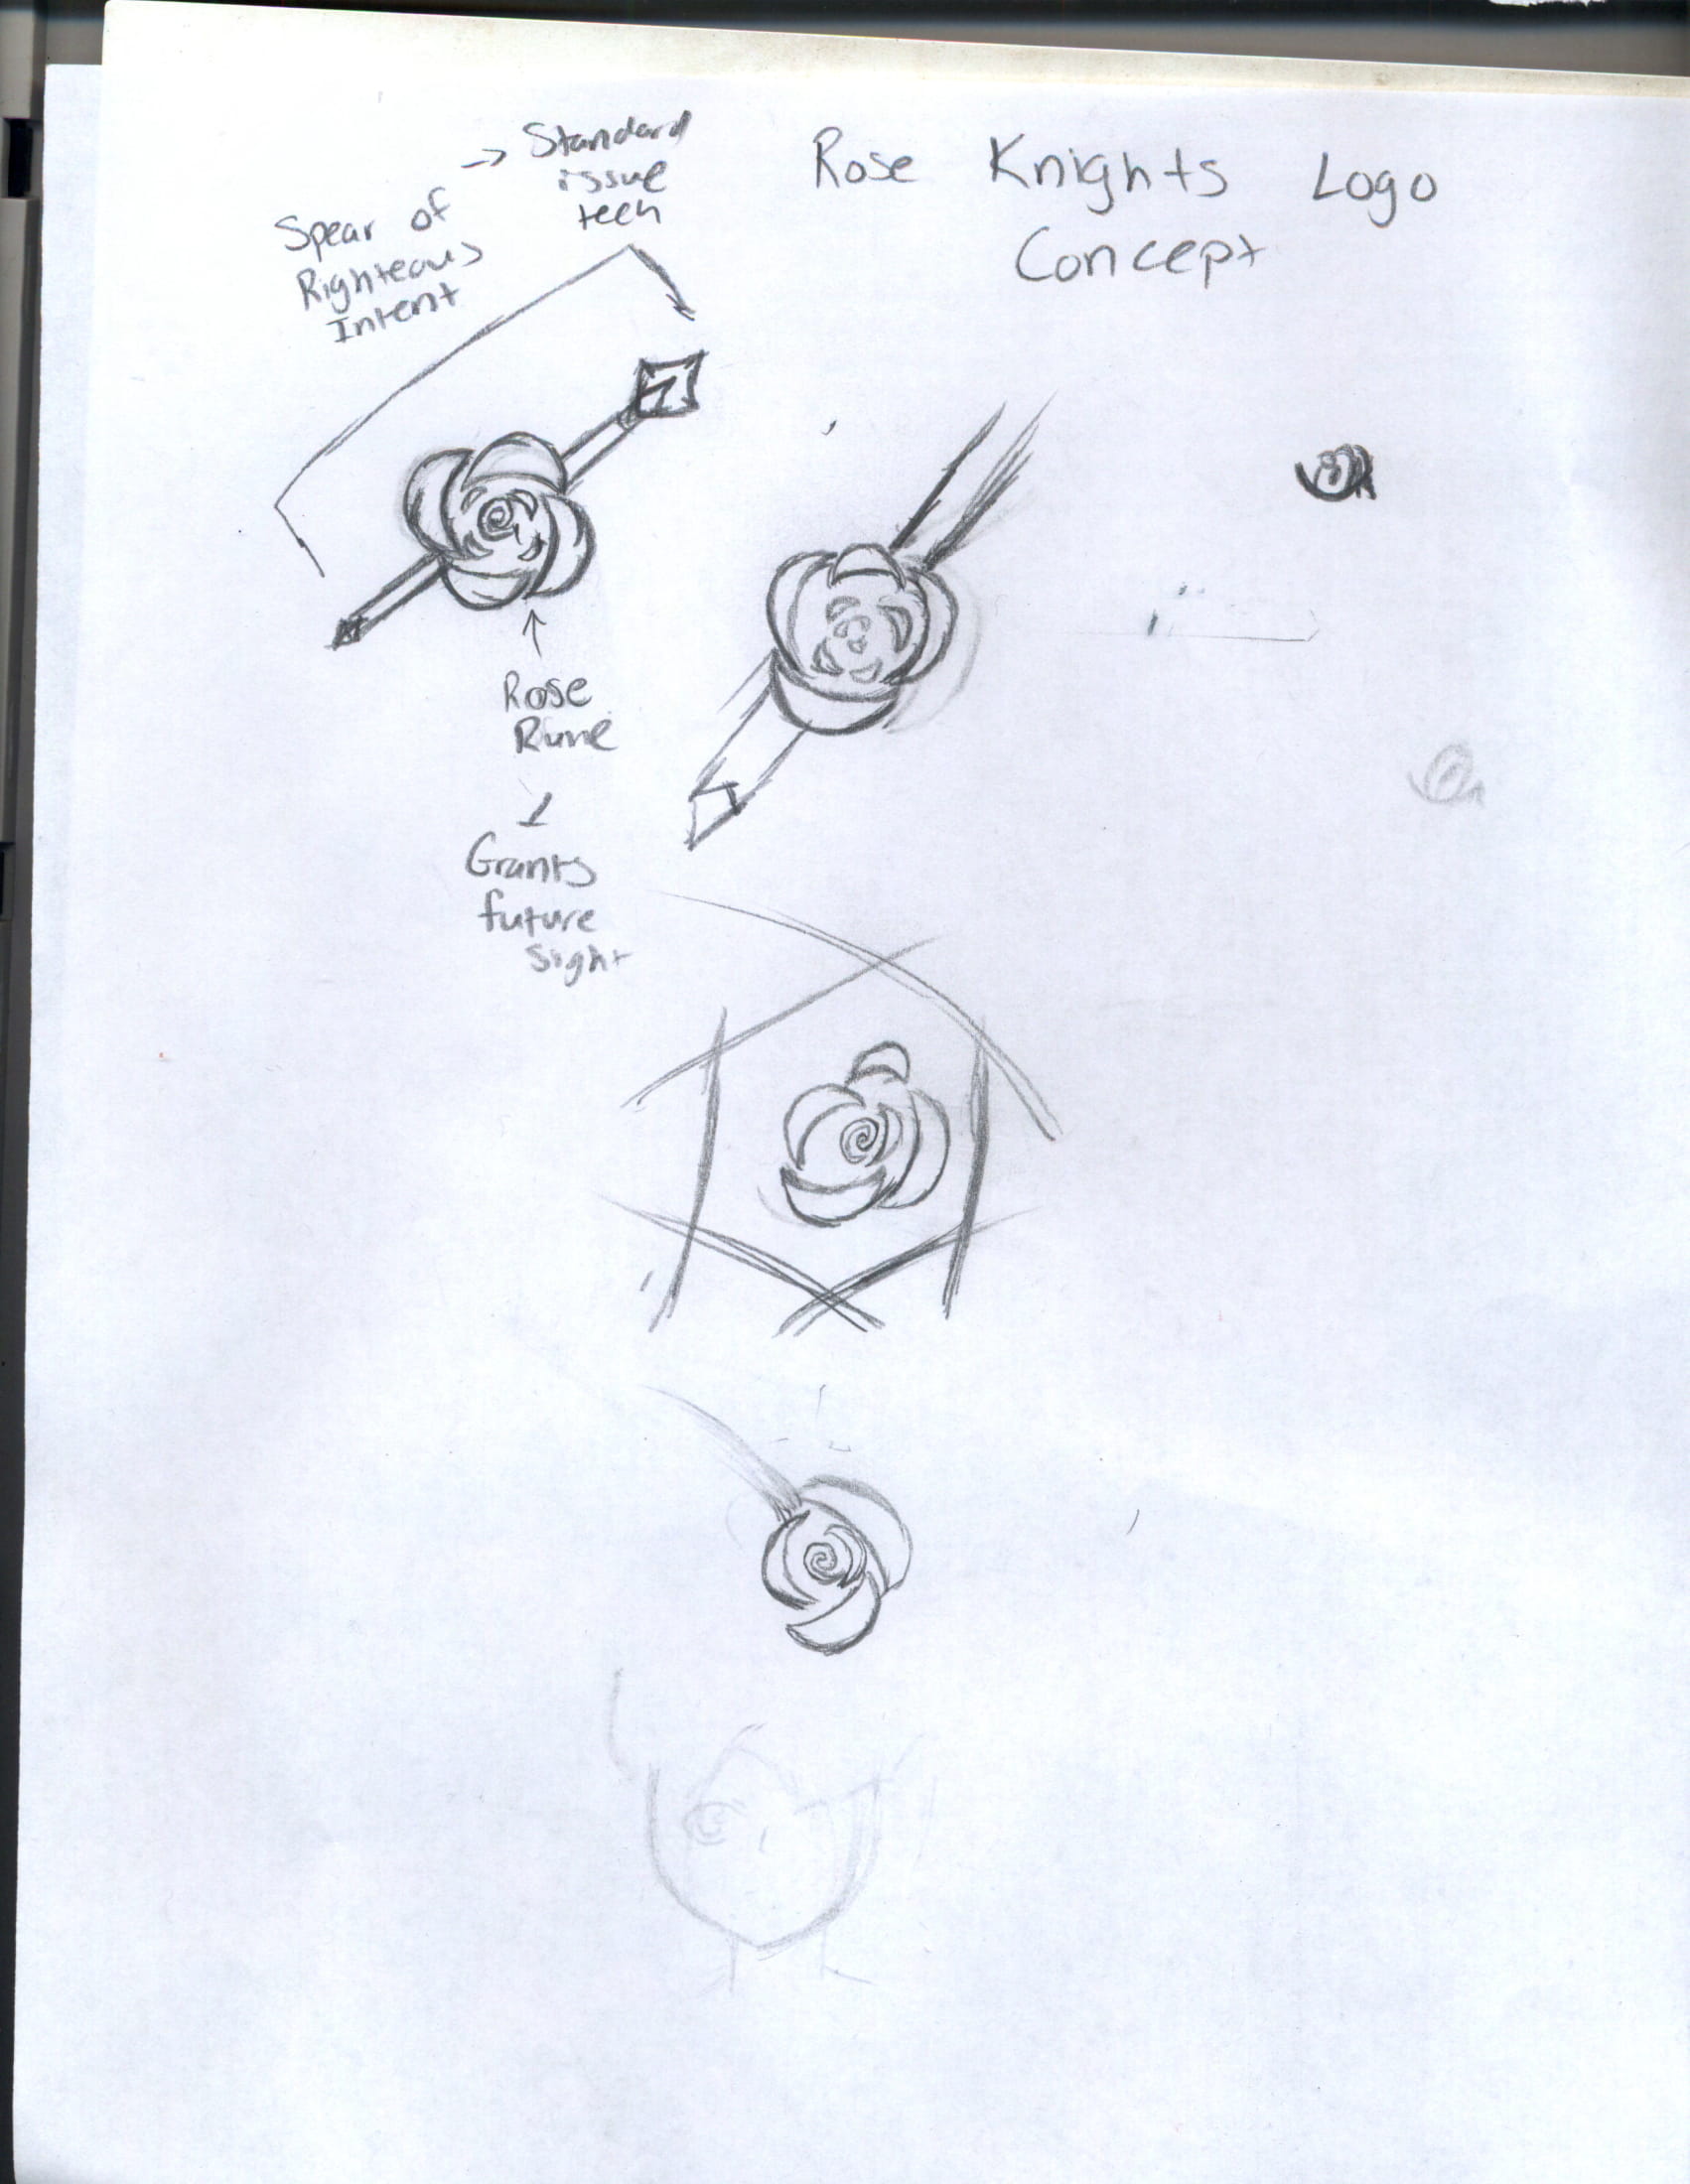 Rose Knights Logo
Concept
Spear of
Righteous
Intent
→ Standard
issue
tech
Rose
Rune
Grants
future
Sight